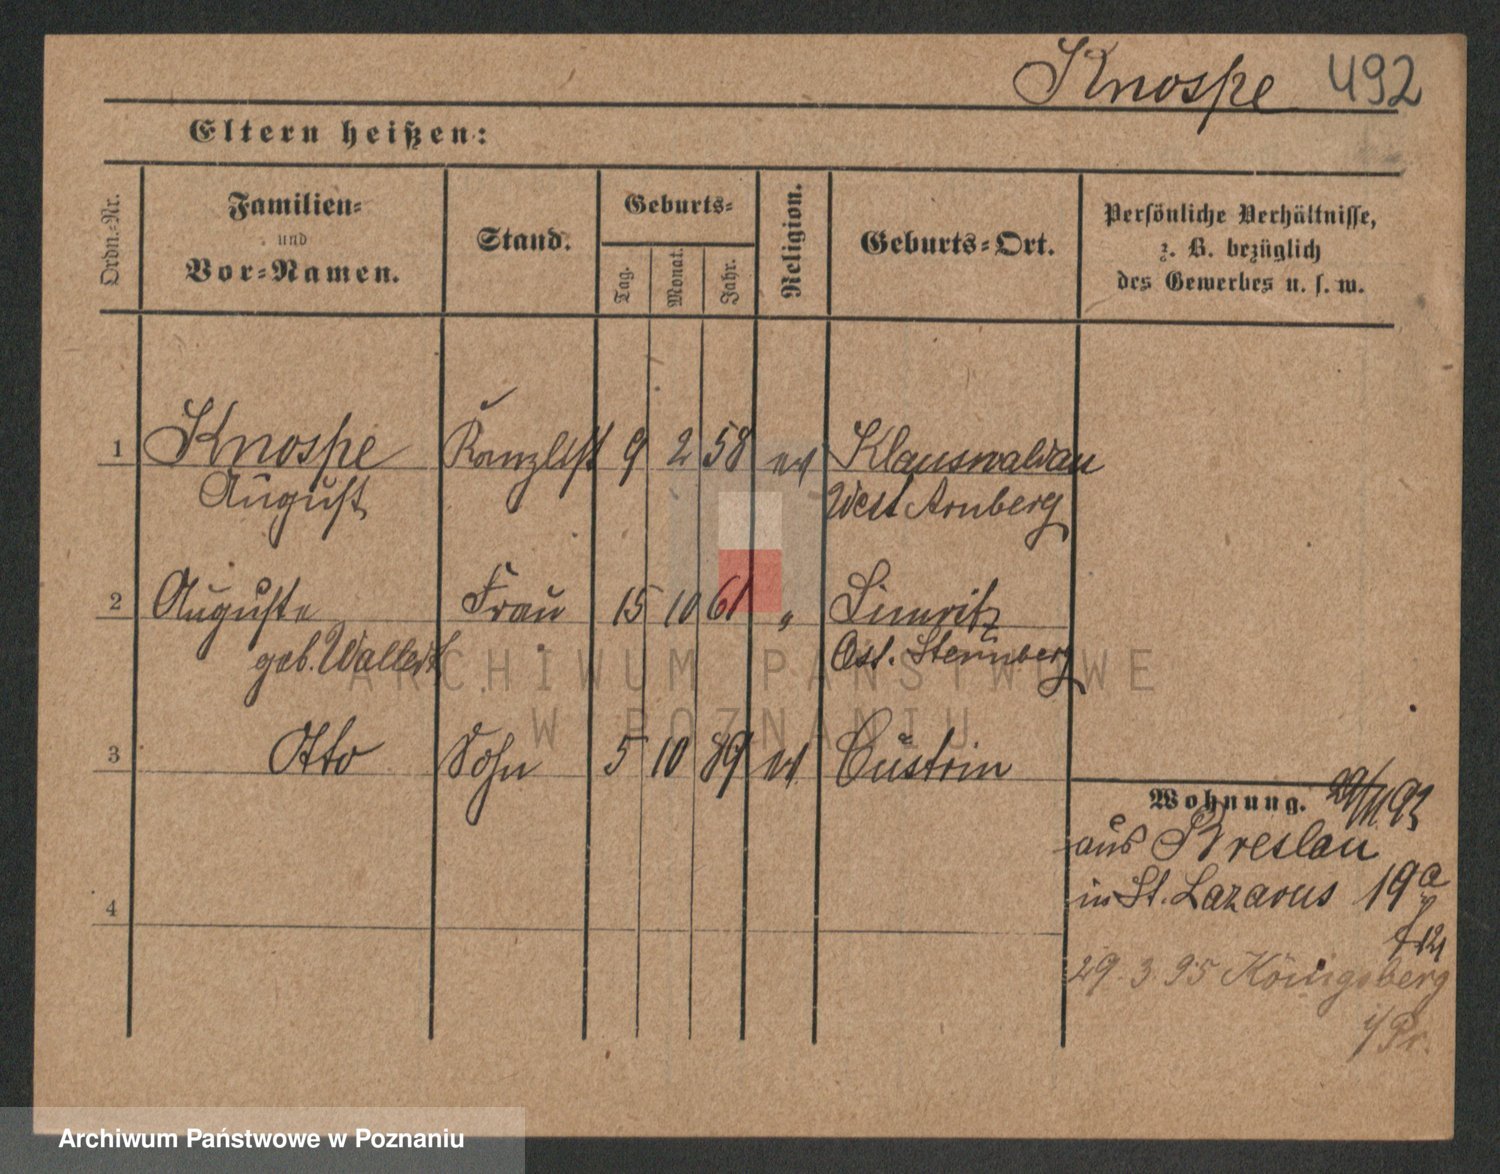 Knospe 492
Eltern heißen:
Ordn.-Nr.
Familien-
und
Vor-Namen.
Stand.
Geburts-
Tag.
Monat.
Jahr.
Religion.
Geburts-Ort.
Persönliche Verhältnisse,
z. B. bezüglich
des Gewerbes u. s. w.
1 Knospe Kanzlist 9 2 58 ev Klauswaldau
August West Arnberg
2 Auguste Frau 15 10 61 " Limritz
geb. Wallert Ost. Sternberg
3 Otto Sohn 5 10 89 ev Cüstrin
4
Wohnung.
aus Breslau
in St. Lazarus 19a
29. 3. 95 Königsberg
i/Pr.
ARCHIWUM PAŃSTWOWE
W POZNANIU
Archiwum Państwowe w Poznaniu